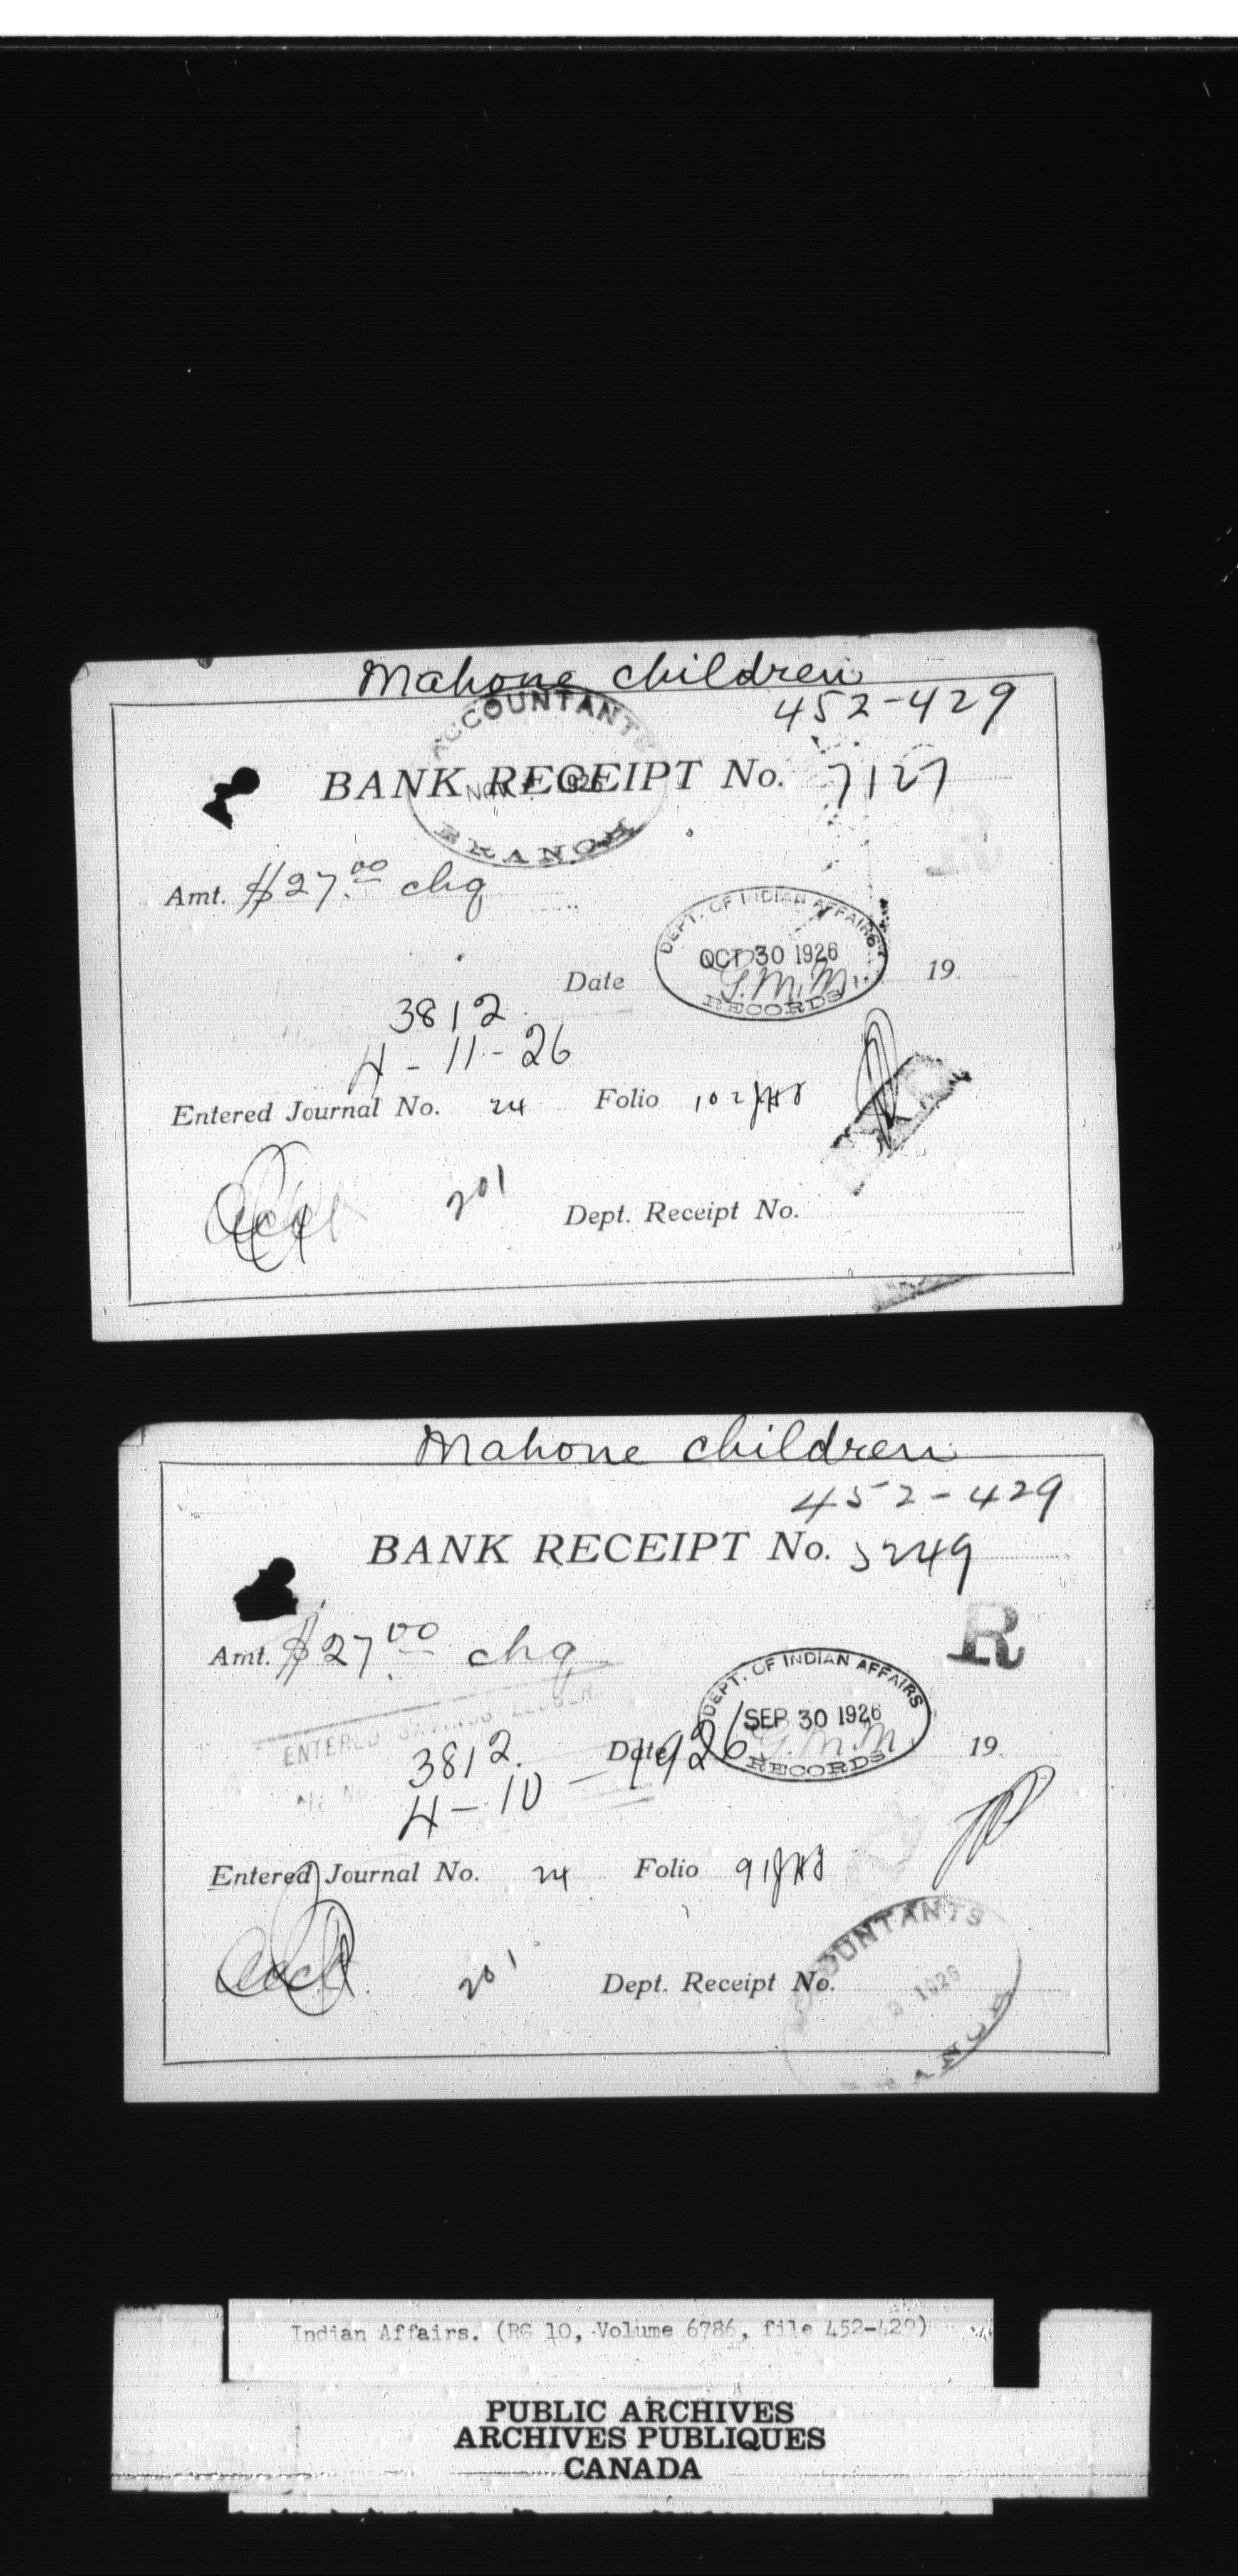 Mahone children
452-429
ACCOUNTANTS
BRANCH
NOV 1926
BANK RECEIPT No. 7127
Amt. $27.00 chq
DEPT. OF INDIAN AFFAIRS
OCT 30 1926
G.M.M.
RECORDS
Date 19
3812
4-11-26
Entered Journal No. 24 Folio 102
201
Dept. Receipt No.
Mahone children
452-429
BANK RECEIPT No. 5249
R
Amt. $27.00 chq
ENTERED SAVINGS LEDGER
DEPT. OF INDIAN AFFAIRS
SEP 30 1926
G.M.M.
RECORDS
3812.
Date 19
4-10-1926
Entered Journal No. 24 Folio 91
201
Dept. Receipt No.
ACCOUNTANTS
BRANCH
Indian Affairs. (RG 10, Volume 6786, file 452-429)
PUBLIC ARCHIVES
ARCHIVES PUBLIQUES
CANADA